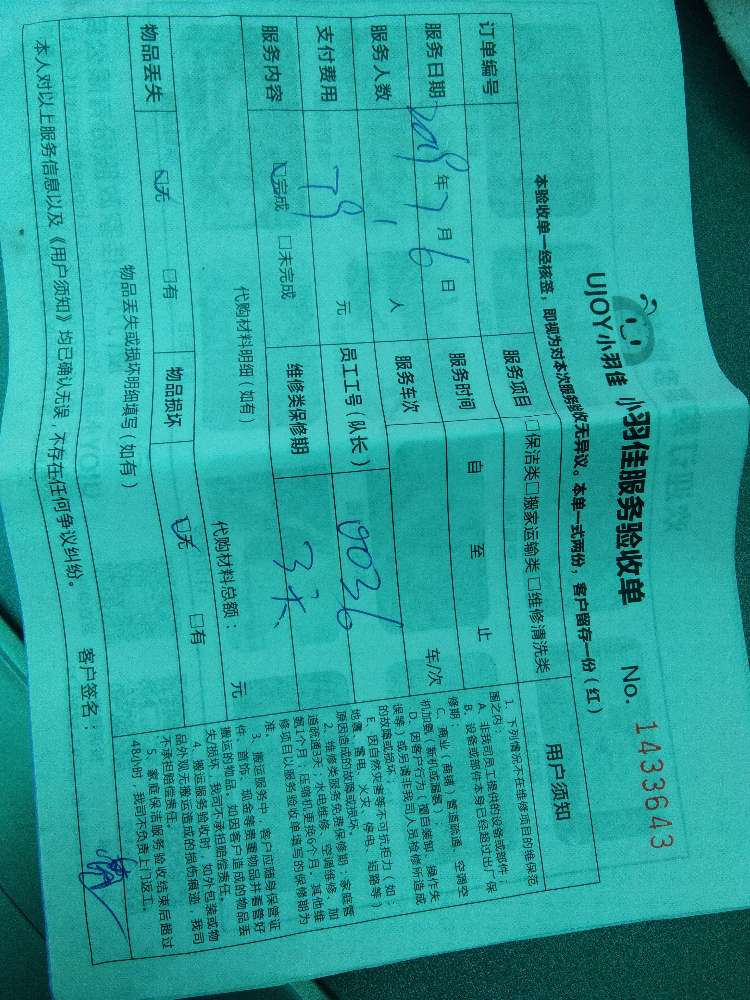 UJOY小羽佳 小羽佳服务验收单 No. 1433643
本验收单一经核签，即视为对本次服务验收无异议。本单一式两份，客户留存一份（红）
订单编号 服务项目 □保洁类□搬家运输类□维修清洗类
服务日期 2019年7月6日 服务时间 自 至 止
服务人数 1 人 服务车次 车/次
支付费用 元 员工工号（队长） 0036
服务内容 ☑完成 □未完成 维修类保修期 3天
代购材料明细（如有） 代购材料总额： 元
物品丢失 ☑无 □有 物品损坏 ☑无 □有
物品丢失或损坏明细填写（如有）
本人对以上服务信息以及《用户须知》均已确认无误，不存在任何争议纠纷。
客户签名：
用户须知
1、下列情况不在维修项目的维保范
围之内：
A、非我司员工提供的设备或部件；
B、设备或部件本身已经超过出厂保
修期；
C、商业（商铺）管道疏通、空调空
机加氨（新机或漏氨）；
D、因客户行为（擅自装卸、操作失
误等）或另请非我司人员检修所造成
的故障或损坏；
E、因自然灾害等不可抗拒力（如：
地震、雷电、火灾、停电、短路等）
原因造成的故障或损坏。
2、维修类服务免费保修期：家庭管
道疏通3天；水电维修、空调维修、加
氨1个月；压缩机更换6个月。其他维
修项目以服务验收单填写的保修期为
准。
3、搬运服务中，客户应随身保管证
件、首饰、现金等贵重物品并看管好
搬运的物品，如因客户造成的物品丢
失/损坏，我司不承担赔偿责任。
4、搬运服务验收时，如外包装或物
品外观无搬运造成的损伤痕迹，我司
不承担赔偿责任。
5、家庭保洁服务验收结束后超过
48小时，我司不负责上门返工。